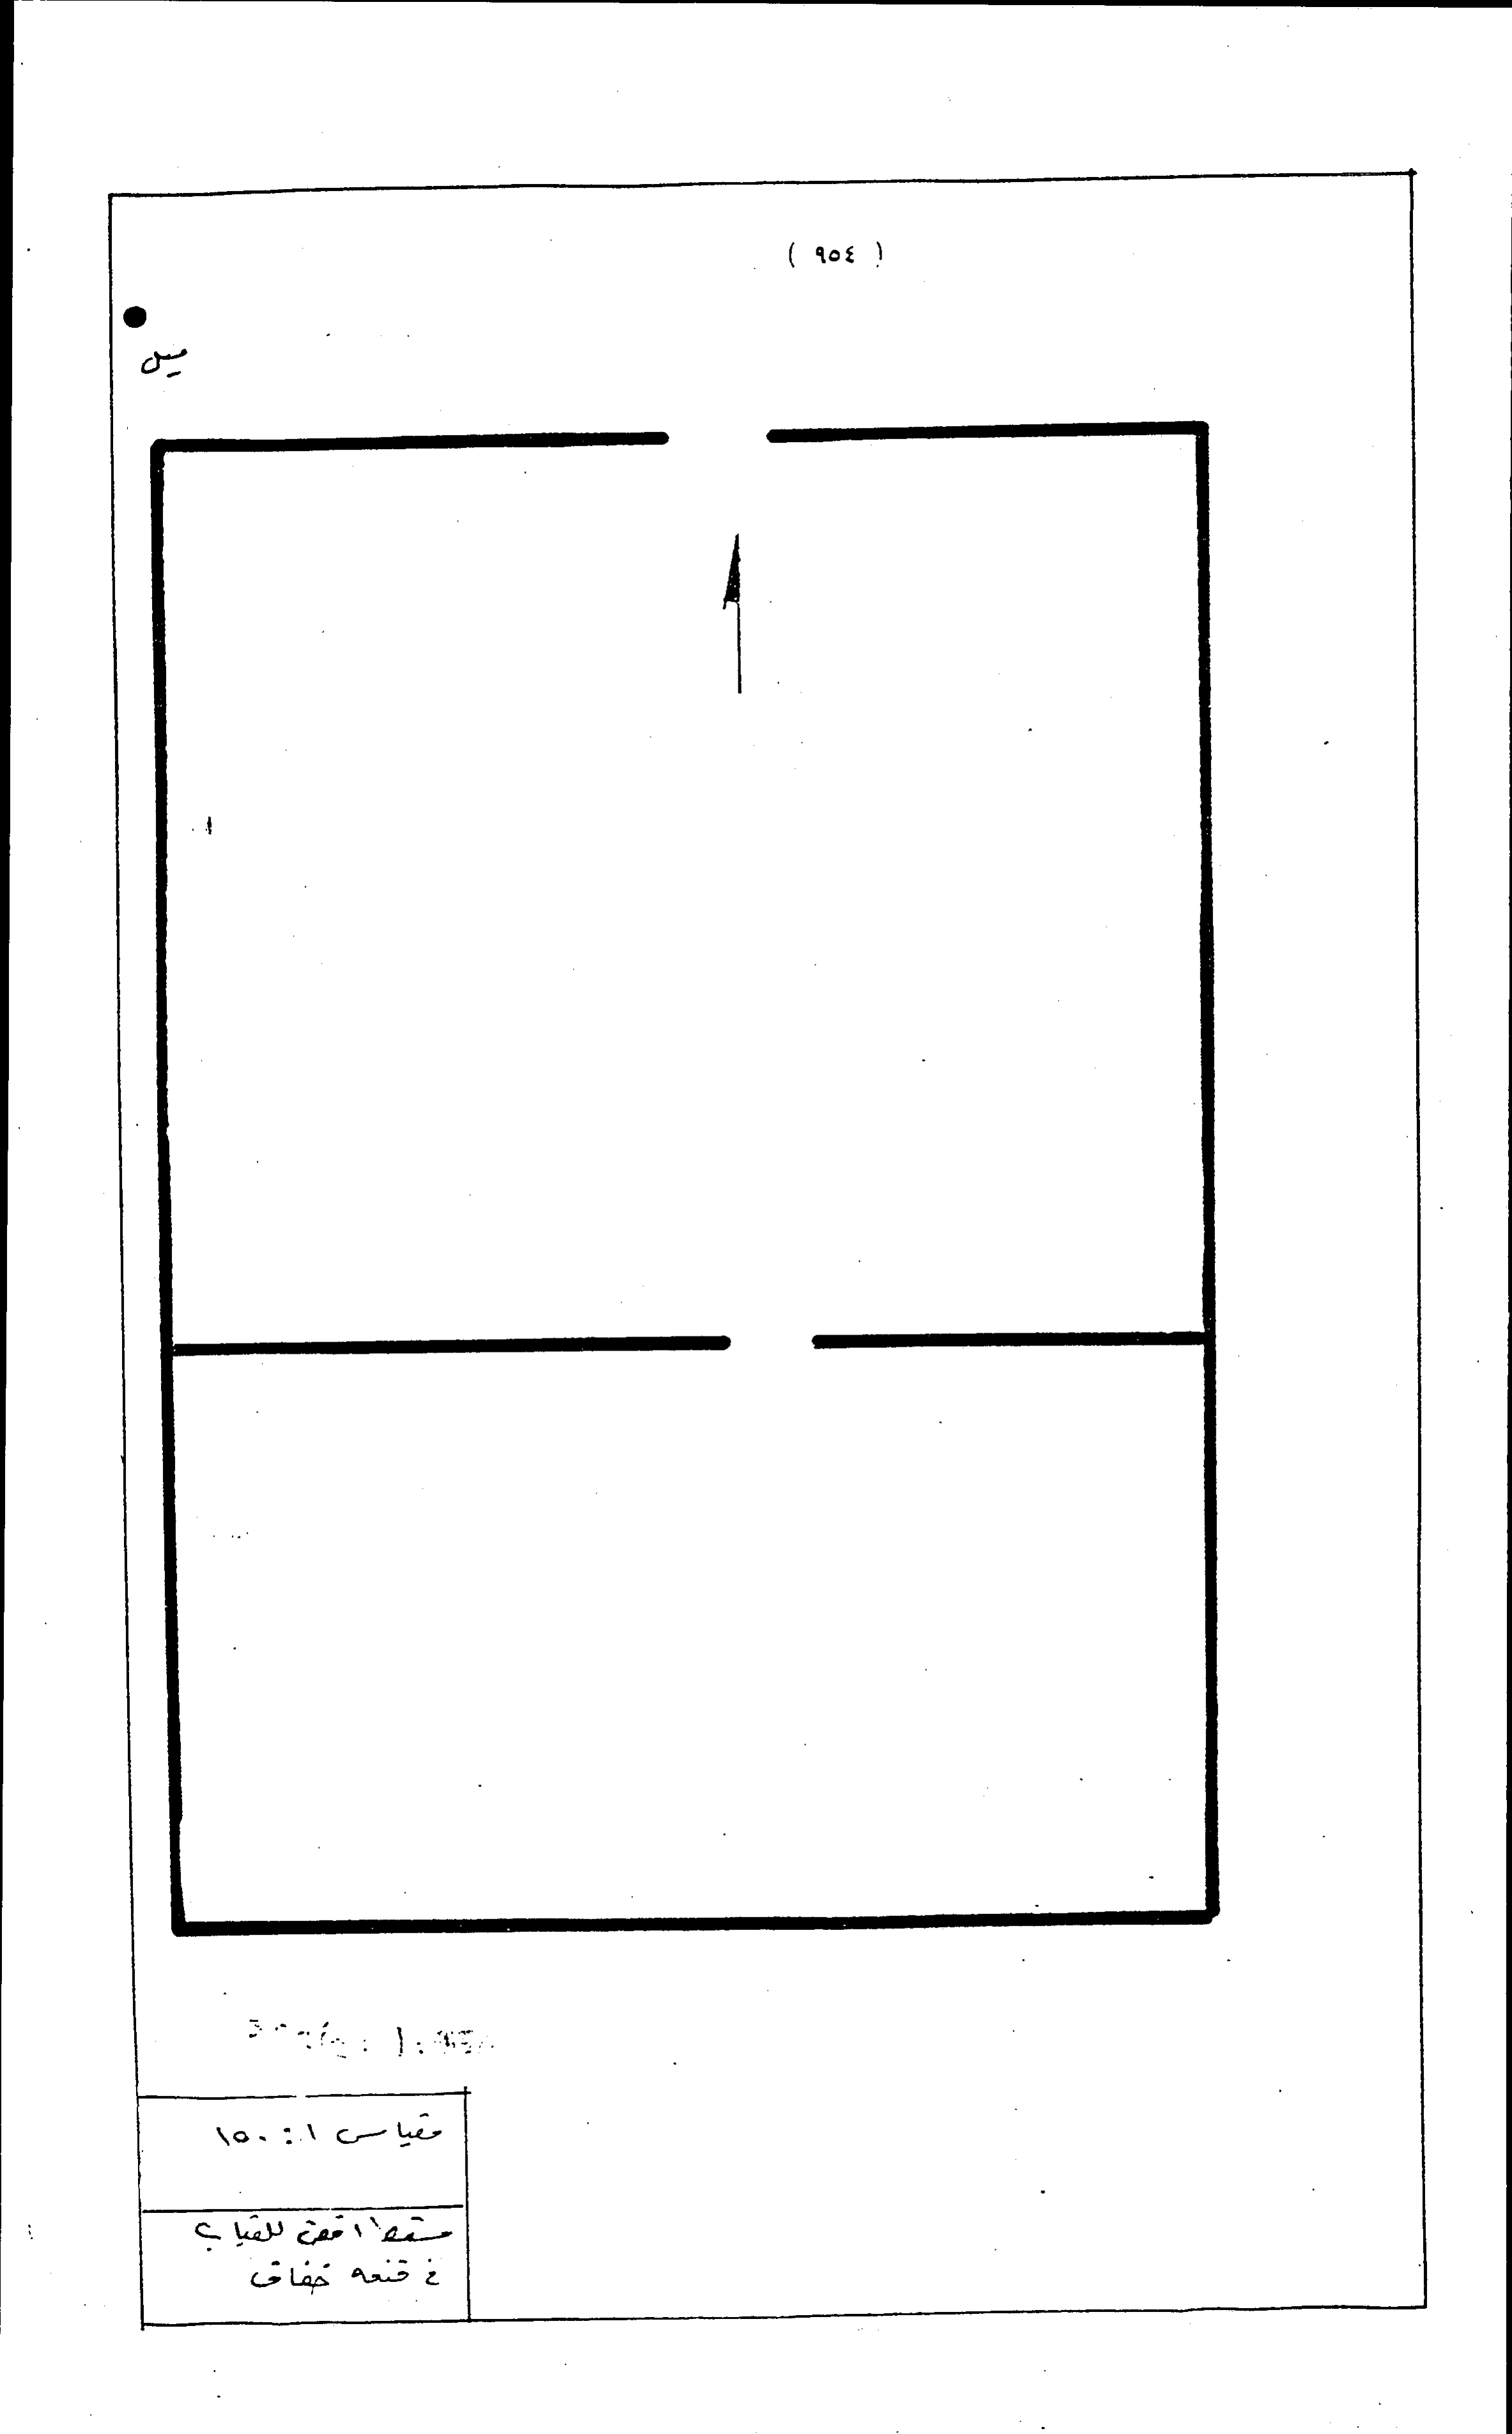 ( ٩٥٤ )
ميل
مقياس ١ : ١٥٠
مسقط افقى للقباب
في قنعه خفاق